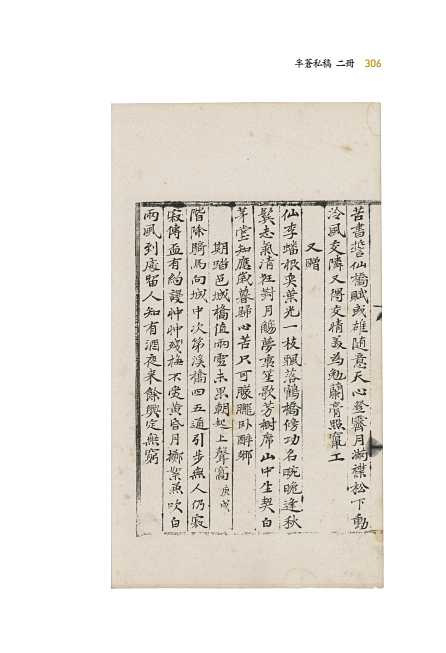 半蒼私稿 二冊 306
苦書誓仙橋賦或雄隨意天心登霽月滿襟松下動
泠風交隣又得交情義為勉蘭膏照竆工
又贈
仙李蟠根奕葉光一枝飄落鶴橋傍功名晼晚逢秋
鬂志氣清狂對月觴夢裏笙歌芳樹席山中生契白
茅堂知應歲暮歸心苦只可朦朧臥醉鄉
期踏邑城橋值雨雪未果朝起上聲窩 庚戌
階除騎馬向城中次第溪橋四五通引步無人仍寂
寂傳盃有約謾忡忡殘梅不受黃昏月擲案煎吹白
雨風到處留人知有酒夜來餘興定無窮